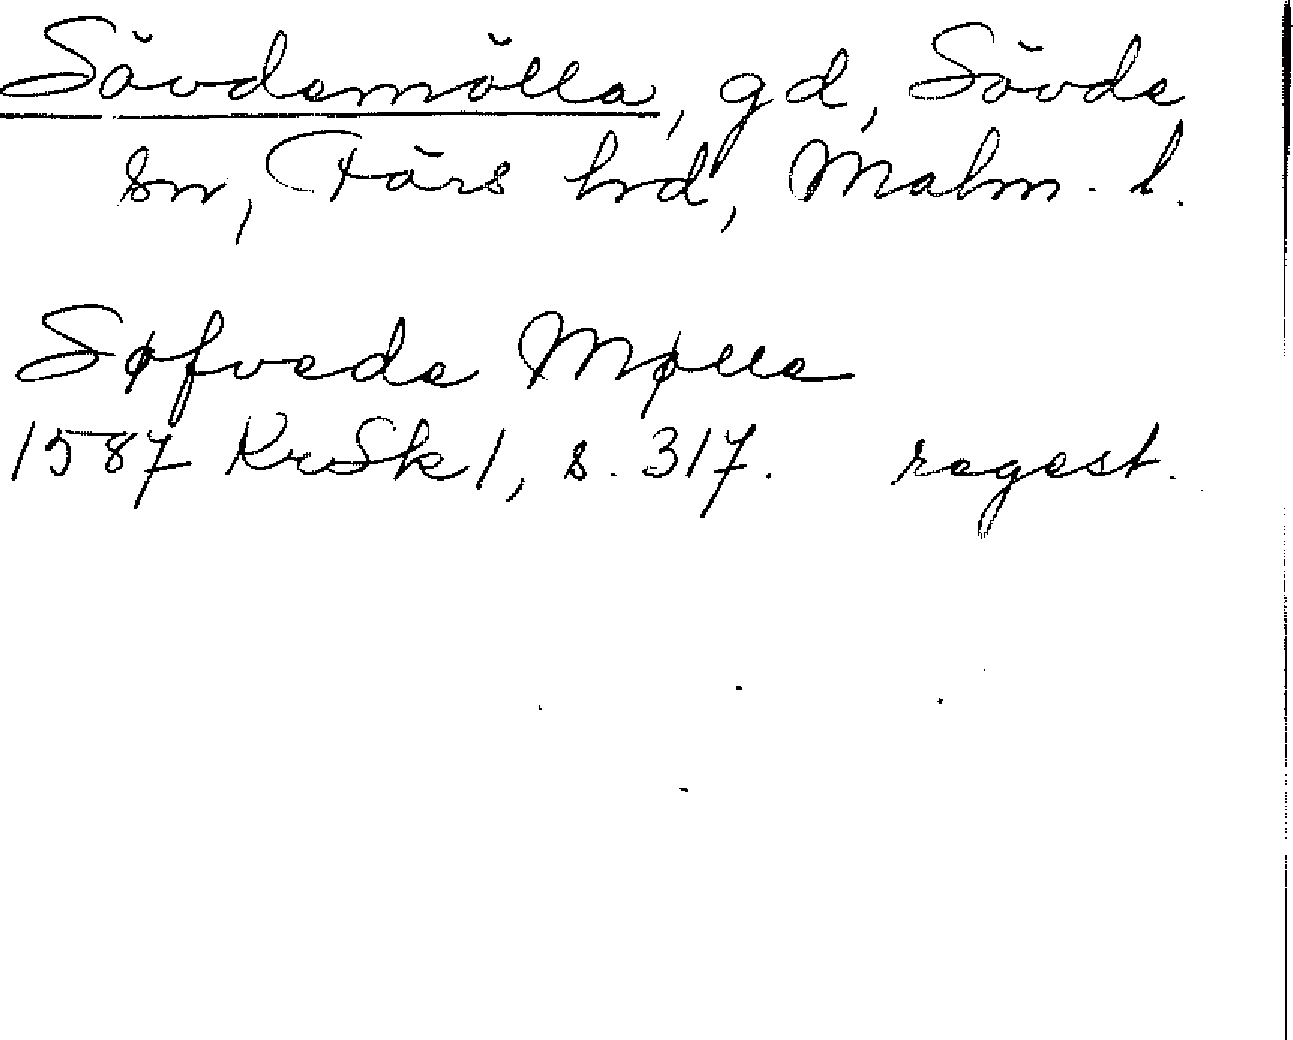 Sövdemölla, gd, Sövde
sn, Färs hd, Malm. l.
Søfvede Mølle
1587 KrSk 1, s. 317. regest.